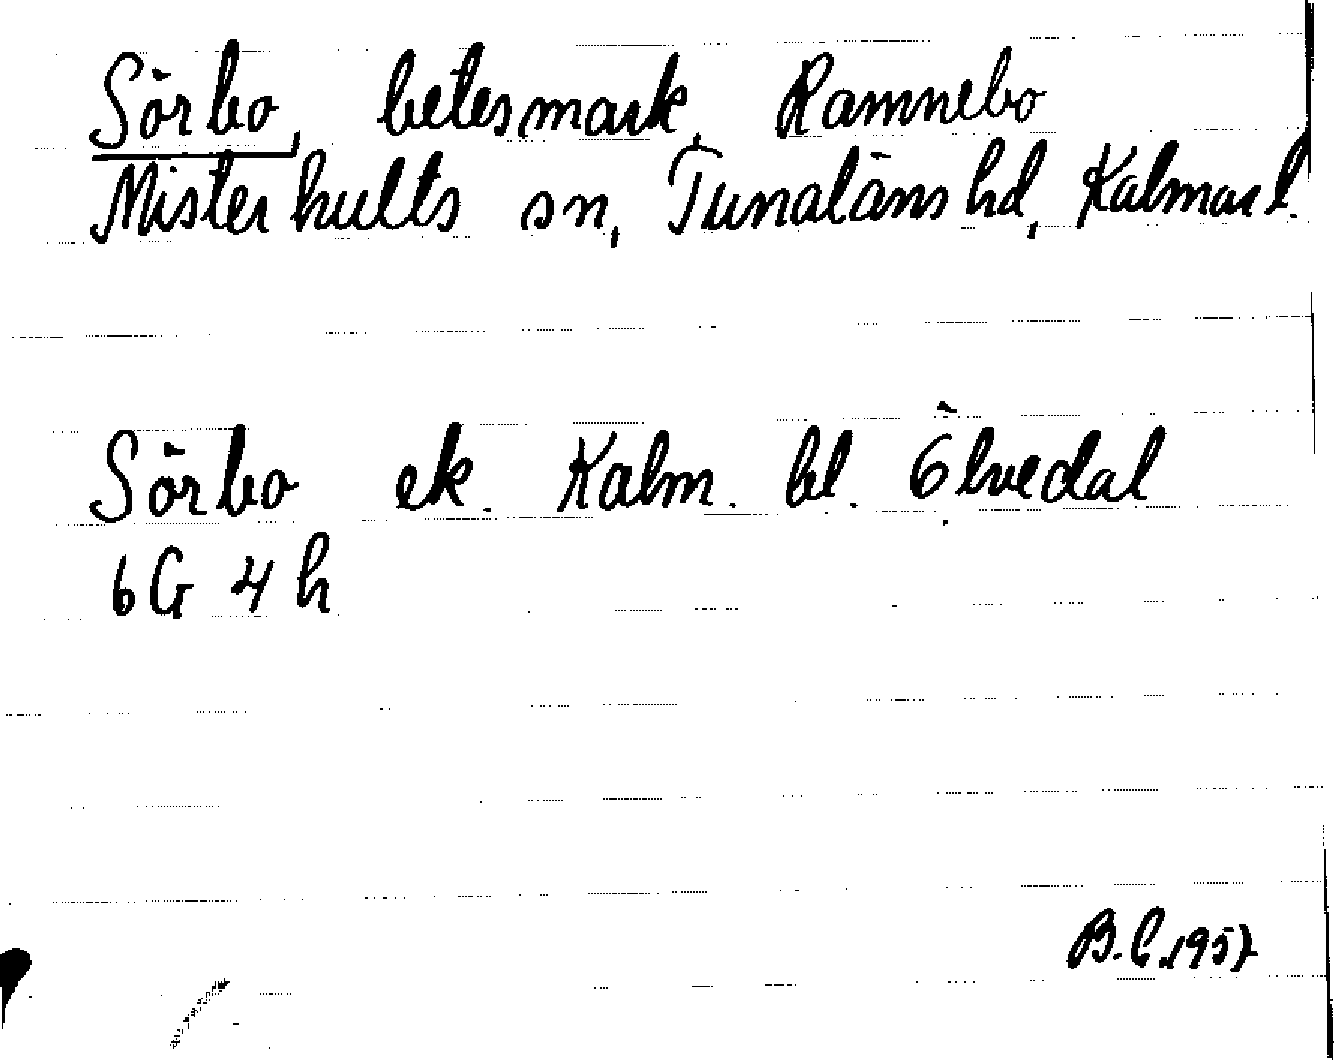 Sörbo, betesmark, Ramnebo
Misterhults sn, Tunaläns hd, Kalmar l.
Sörbo ek. Kalm. bl. Ölvedal
6G 4h
B.C.1957